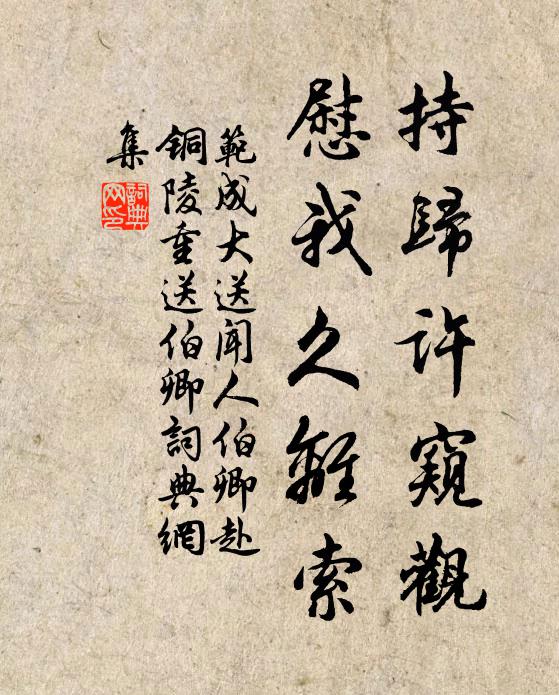 持歸許窺觀
慰我久離索
範成大送聞人伯卿赴
铜陵重送伯卿詞典網
集
詞典
网印